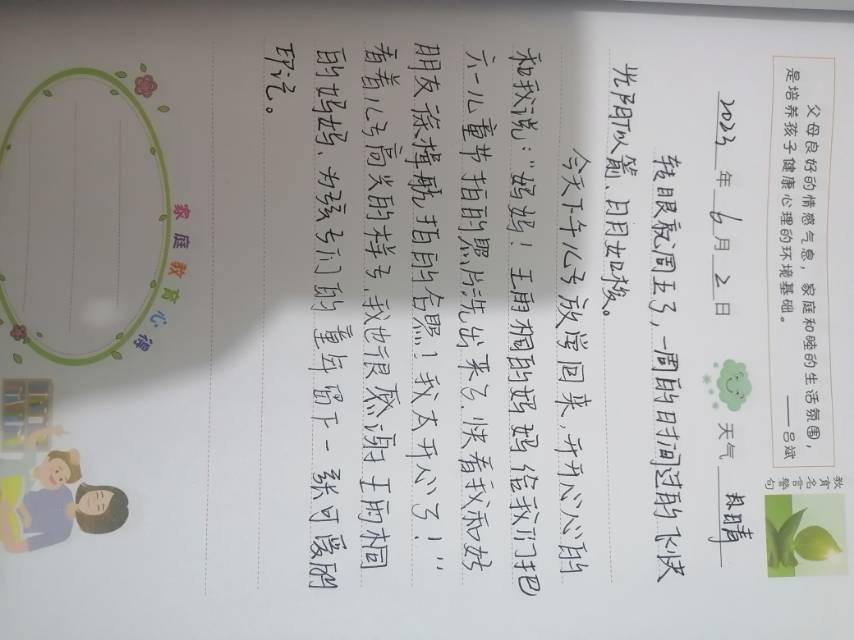 教育名言警句
父母良好的情感气息，家庭和睦的生活氛围，
是培养孩子健康心理的环境基础。
——吕斌
2023年6月2日 天气 晴
转眼就周五了，一周的时间过的飞快
光阴似箭、日月如梭。
今天下午儿子放学回来，开开心心的
和我说：“妈妈！王雨桐的妈妈给我们把
六一儿童节拍的照片洗出来了，快看我和好
朋友徐梓航拍的合照！我太开心了！”
看着儿子高兴的样子，我也很感谢王雨桐
的妈妈、为孩子们的童年留下一张可爱的
印记。
家庭教育心得